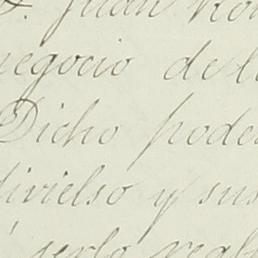 D. Juan Ro
negocio de l
Dicho pode
divielso y sus
serlo real